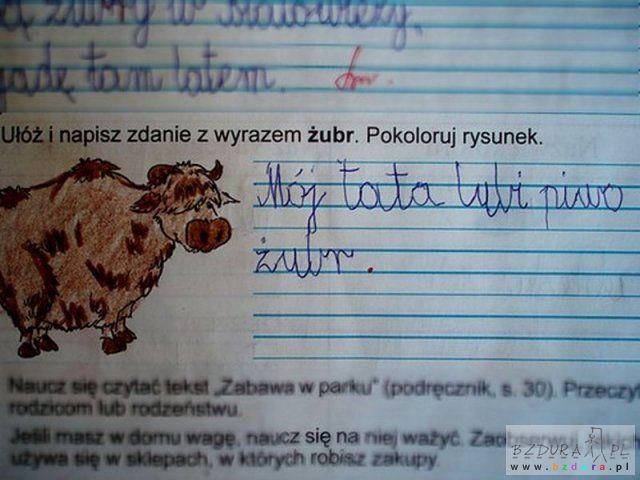 żubry w Białowieży.
jadę tam latem.
Ułóż i napisz zdanie z wyrazem żubr. Pokoloruj rysunek.
Mój tata lubi piwo
żubr.
Naucz się czytać tekst „Zabawa w parku" (podręcznik, s. 30). Przeczyt
rodzicom lub rodzeństwu.
Jeśli masz w domu wagę, naucz się na niej ważyć.
używa się w sklepach, w których robisz zakupy.
BZDURA.PL
www.bzdura.pl